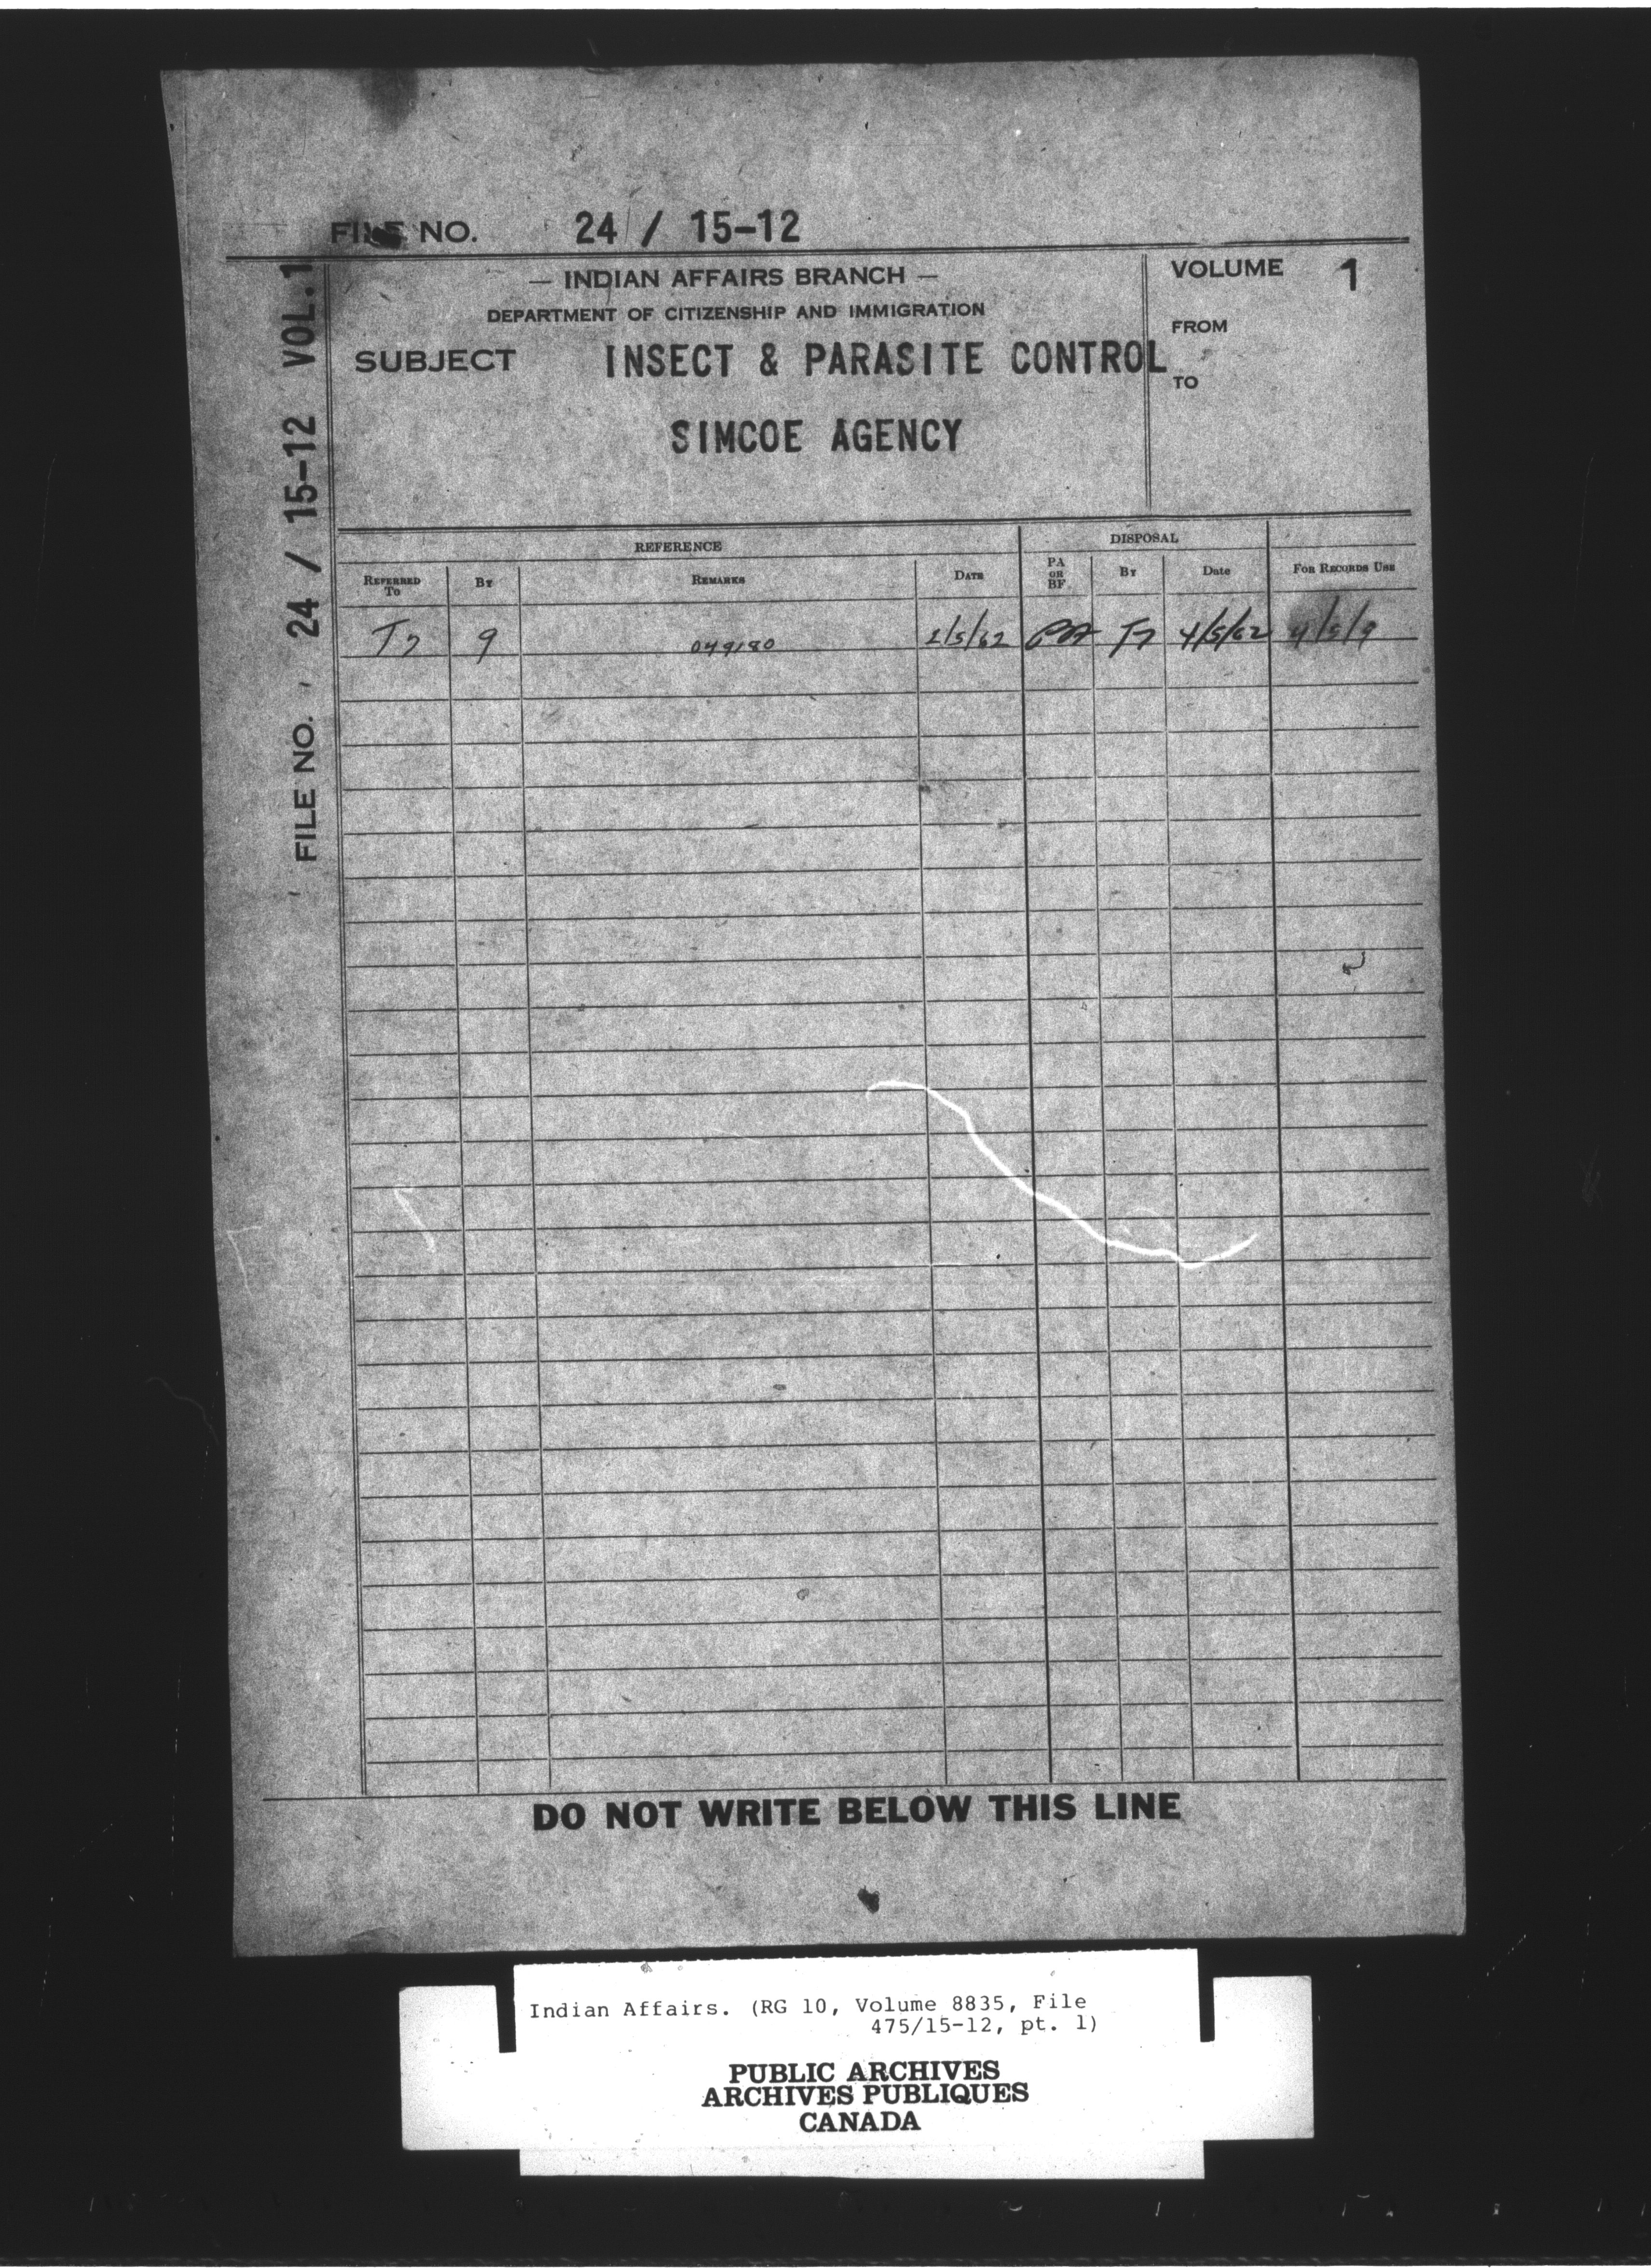 FILE NO. 24 / 15-12
— INDIAN AFFAIRS BRANCH —
DEPARTMENT OF CITIZENSHIP AND IMMIGRATION
SUBJECT INSECT & PARASITE CONTROL
SIMCOE AGENCY
VOLUME 1
FROM
TO
FILE NO. 24 / 15-12 VOL.1
REFERENCE
DISPOSAL
REFERRED TO
BY
REMARKS
DATE
PA OR BF
BY
Date
FOR RECORDS USE
T7 9 049180 2/5/62 PA T7 4/5/62 4/5/9
DO NOT WRITE BELOW THIS LINE
Indian Affairs. (RG 10, Volume 8835, File
475/15-12, pt. 1)
PUBLIC ARCHIVES
ARCHIVES PUBLIQUES
CANADA